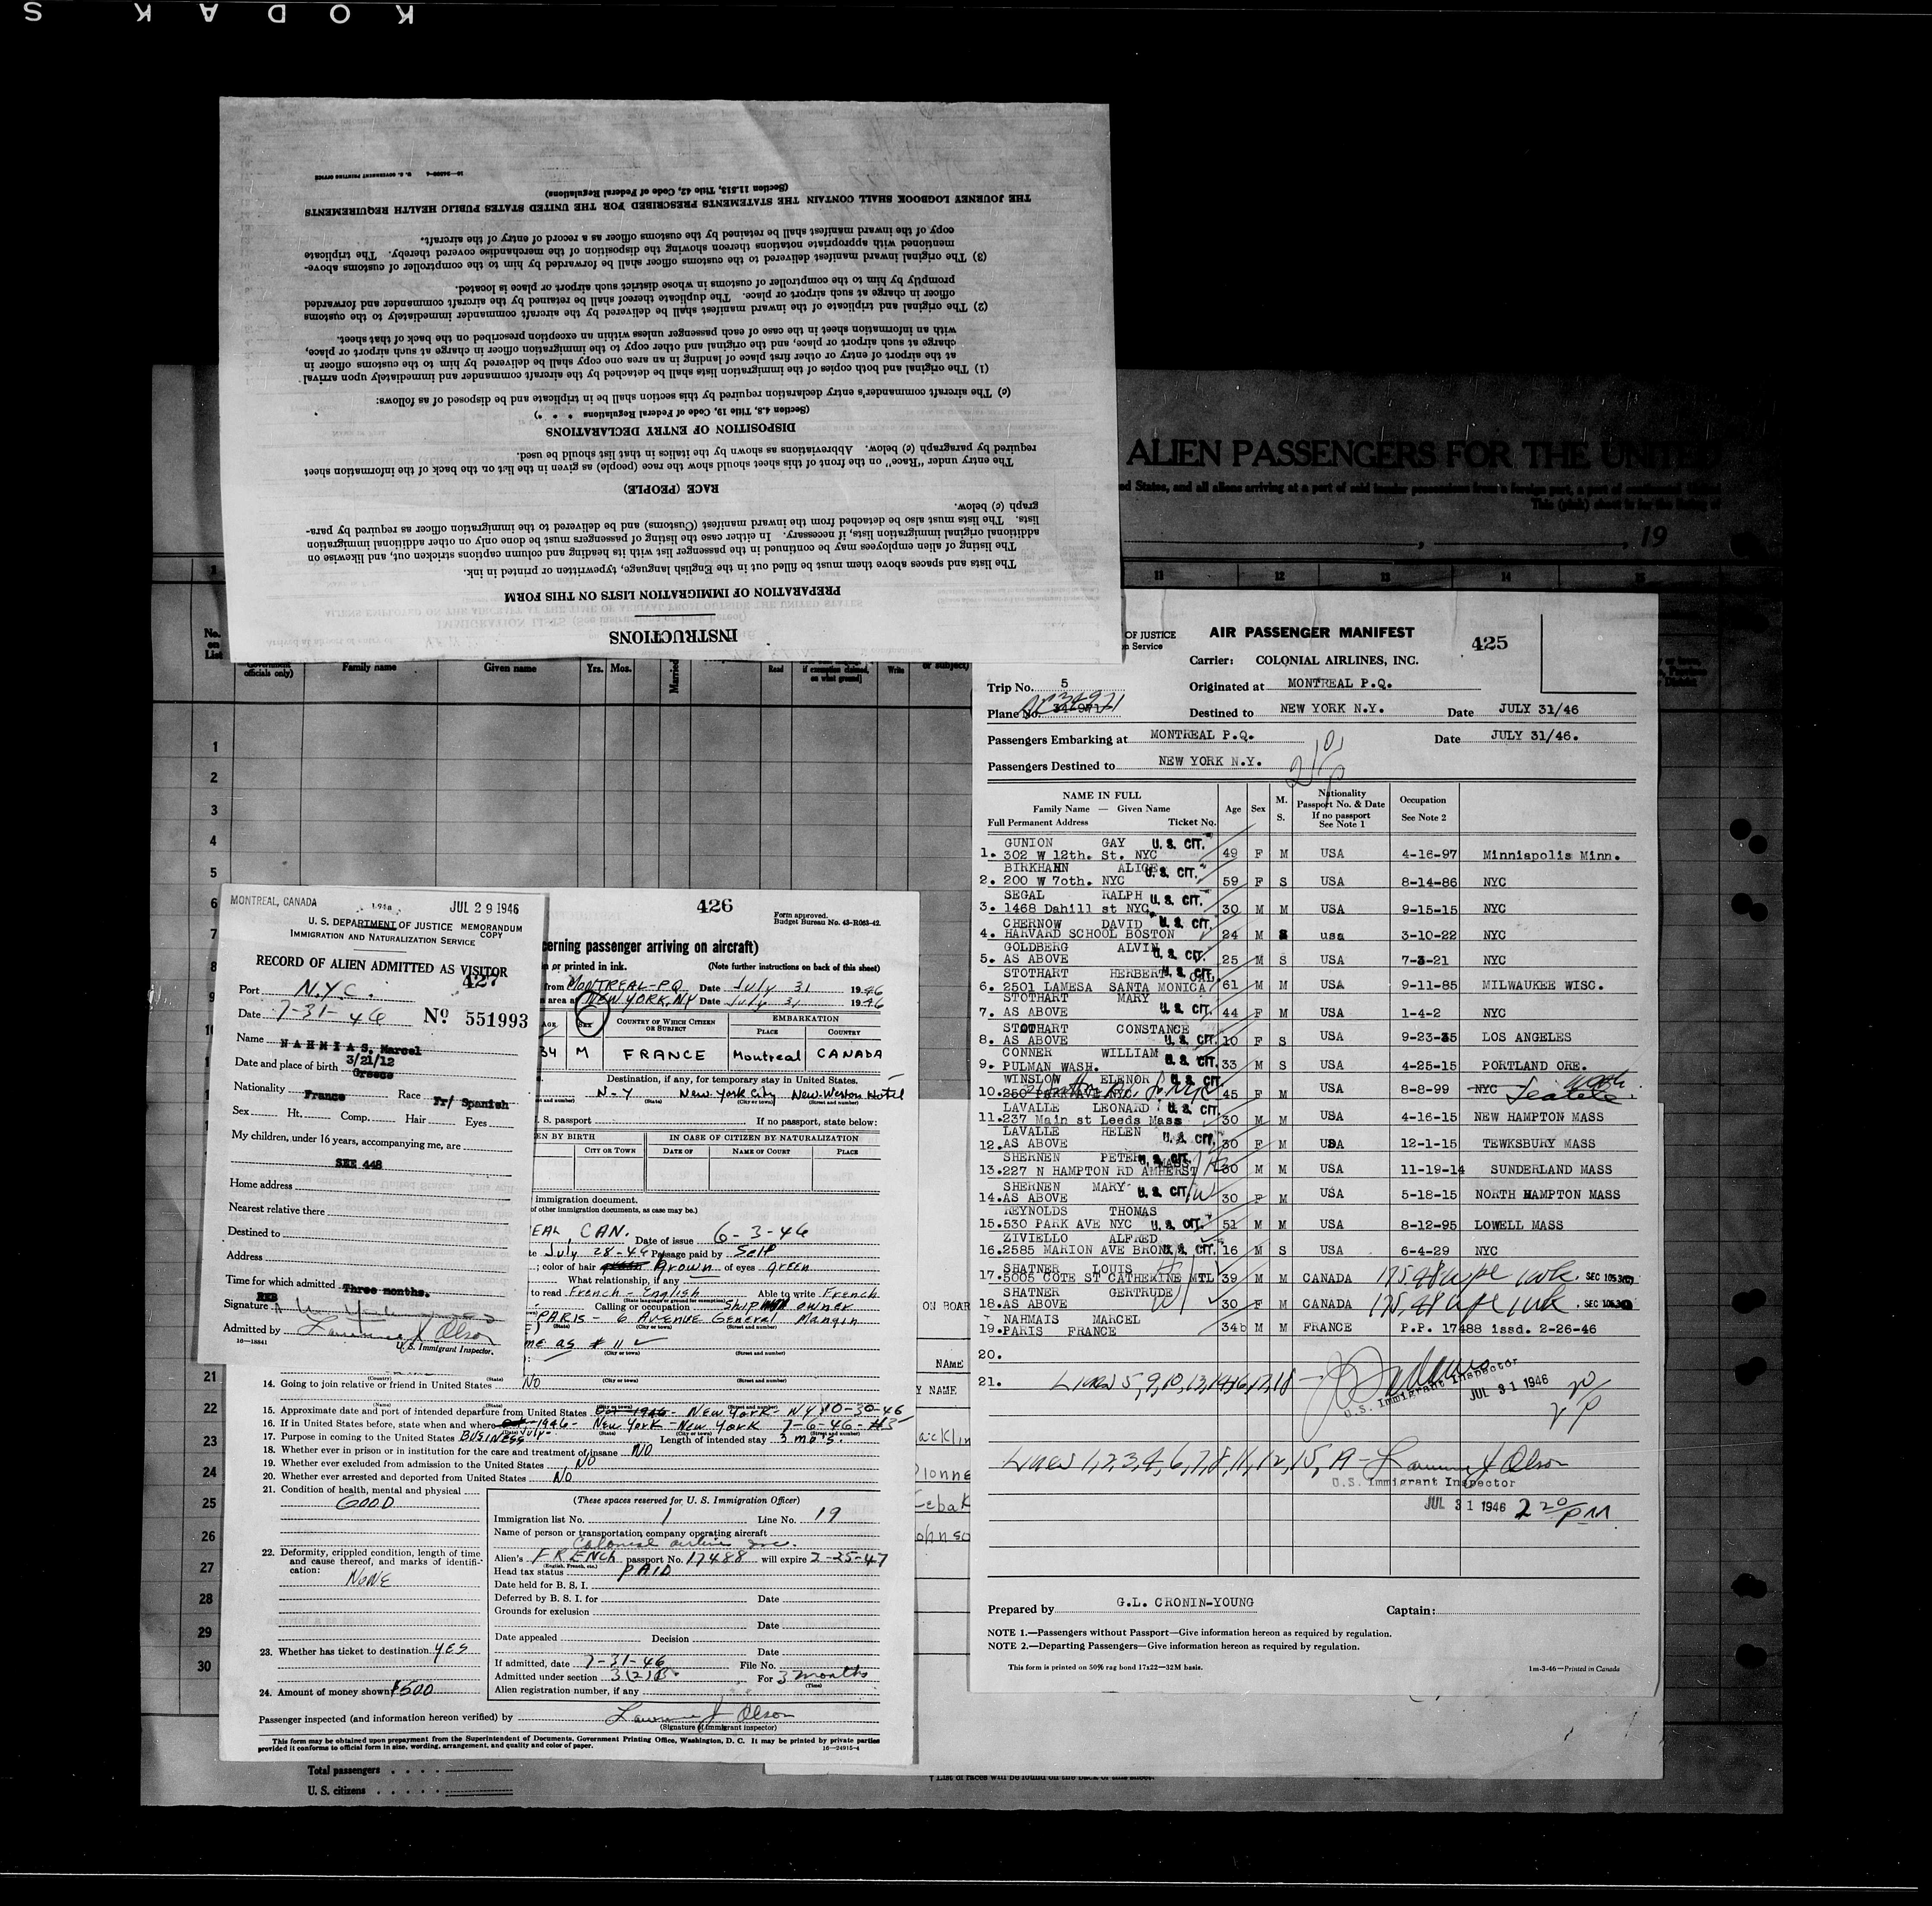 KODAK S
INSTRUCTIONS
PREPARATION OF IMMIGRATION LISTS ON THIS FORM
The lists and spaces above them must be filled out in the English language, typewritten or printed in ink.
The listing of alien employees may be continued in the passenger list with its heading and column captions stricken out, and likewise on
additional original immigration lists, if necessary. In either case the listing of passengers must be done only on other additional immigration
lists. The lists must also be detached from the inward manifest (Customs) and be delivered to the immigration officer as required by para-
graph (c) below.
RACE (PEOPLE)
The entry under "Race" on the front of this sheet should show the race (people) as given in the list on the back of the information sheet
required by paragraph (c) below. Abbreviations as shown by the italics in that list should be used.
DISPOSITION OF ENTRY DECLARATIONS
(Section 4.8, Title 19, Code of Federal Regulations * * *)
(c) The aircraft commander's entry declaration required by this section shall be in triplicate and be disposed of as follows:
(1) The original and both copies of the immigration lists shall be detached by the aircraft commander and immediately upon arrival
at the airport of entry or other first place of landing in an area one copy shall be delivered by him to the customs officer in
charge at such airport or place, and the original and other copy to the immigration officer in charge at such airport or place,
with an information sheet in the case of each passenger unless within an exception prescribed on the back of that sheet.
(2) The original and triplicate of the inward manifest shall be delivered by the aircraft commander immediately to the customs
officer in charge at such airport or place. The duplicate thereof shall be retained by the aircraft commander and forwarded
promptly by him to the comptroller of customs in whose district such airport or place is located.
(3) The original inward manifest delivered to the customs officer shall be forwarded by him to the comptroller of customs above-
mentioned with appropriate notations thereon showing the disposition of the merchandise covered thereby. The triplicate
copy of the inward manifest shall be retained by the customs officer as a record of entry of the aircraft.
THE JOURNEY LOGBOOK SHALL CONTAIN THE STATEMENTS PRESCRIBED FOR THE UNITED STATES PUBLIC HEALTH REQUIREMENTS
(Section 11.513, Title 42, Code of Federal Regulations)
16—24900-4 U. S. GOVERNMENT PRINTING OFFICE
ALIEN PASSENGERS FOR THE UNITED
ed States, and all aliens arriving at a port of said insular possessions from a foreign port, a port of continental
This (pink) sheet is for the listing of
, 19
1 11 12 13 14 15
No. on List
Government officials only) Family name Given name Yrs. Mos. Married Read if exemption claimed, on what ground] Write or subject)
1
2
3
4
5
6
7
8
9
10
21
22
23
24
25
26
27
28
29
30
Total passengers . . . .
U. S. citizens . . . . .
† List of races will be found on the back of this sheet.
ON BOAR
NAME
Y NAME
OF JUSTICE
n Service
AIR PASSENGER MANIFEST 425
Carrier: COLONIAL AIRLINES, INC.
Trip No. 5 Originated at MONTREAL P.Q.
Plane No. Destined to NEW YORK N.Y. Date JULY 31/46
Passengers Embarking at MONTREAL P.Q. Date JULY 31/46.
Passengers Destined to NEW YORK N.Y.
NAME IN FULL
Family Name — Given Name
Full Permanent Address Ticket No.
Age Sex M. S. Nationality Passport No. & Date If no passport See Note 1 Occupation See Note 2
GUNION GAY U. S. CIT.
1. 302 W 12th. St. NYC 49 F M USA 4-16-97 Minniapolis Minn.
BIRKHAHN ALICE U. S. CIT.
2. 200 W 7oth. NYC 59 F S USA 8-14-86 NYC
SEGAL RALPH U. S. CIT.
3. 1468 Dahill st NYC 30 M M USA 9-15-15 NYC
CHERNOW DAVID U. S. CIT.
4. HARVARD SCHOOL BOSTON 24 M S usa 3-10-22 NYC
GOLDBERG ALVIN U. S. CIT.
5. AS ABOVE 25 M S USA 7-3-21 NYC
STOTHART HERBERT U. S. CIT.
6. 2501 LAMESA SANTA MONICA 61 M M USA 9-11-85 MILWAUKEE WISC.
STOTHART MARY U. S. CIT.
7. AS ABOVE 44 F M USA 1-4-2 NYC
STOTHART CONSTANCE
8. AS ABOVE U. S. CIT. 10 F S USA 9-23-35 LOS ANGELES
CONNER WILLIAM U. S. CIT.
9. PULMAN WASH. 33 M S USA 4-25-15 PORTLAND ORE.
WINSLOW ELENOR U. S. CIT.
10. 45 F M USA 8-8-99 NYC Seattle Wash.
LAVALLE LEONARD U. S. CIT.
11. 237 Main st Leeds Mass 30 M M USA 4-16-15 NEW HAMPTON MASS
LAVALLE HELEN U. S. CIT.
12. AS ABOVE 30 F M USA 12-1-15 TEWKSBURY MASS
SHERNEN PETER U. S. CIT.
13. 227 N HAMPTON RD AMHERST MASS 30 M M USA 11-19-14 SUNDERLAND MASS
SHERNEN MARY U. S. CIT.
14. AS ABOVE 30 F M USA 5-18-15 NORTH HAMPTON MASS
REYNOLDS THOMAS
15. 530 PARK AVE NYC U. S. CIT. 51 M M USA 8-12-95 LOWELL MASS
ZIVIELLO ALFRED
16. 2585 MARION AVE BRONX U. S. CIT. 16 M S USA 6-4-29 NYC
SHATNER LOUIS
17. 5005 COTE ST CATHERINE MTL 39 M M CANADA
SHATNER GERTRUDE
18. AS ABOVE 30 F M CANADA
NAHMAIS MARCEL
19. PARIS FRANCE 34 M M FRANCE P.P. 17488 issd. 2-26-46
20.
21. Lines 5,9,10,13,14,16,17,18
U.S. Immigrant Inspector
JUL 31 1946
Lines 1,2,3,4,6,7,8,11,12,15,19 - Lawrence J Olson
U.S. Immigrant Inspector
JUL 31 1946 2 20 PM
Prepared by G.L. CRONIN-YOUNG Captain:
NOTE 1.—Passengers without Passport—Give information hereon as required by regulation.
NOTE 2.—Departing Passengers—Give information hereon as required by regulation.
This form is printed on 50% rag bond 17x22—32M basis. 1m-3-46—Printed in Canada
MONTREAL, CANADA JUL 29 1946
U. S. DEPARTMENT OF JUSTICE MEMORANDUM COPY
IMMIGRATION AND NATURALIZATION SERVICE
RECORD OF ALIEN ADMITTED AS VISITOR
427
Port N.Y.C.
Date 7-31-46 No 551993
Name NAHMIAS, Marcel
Date and place of birth 3/21/12
Greece
Nationality France Race Fr/ Spanish
Sex Ht. Comp. Hair Eyes
My children, under 16 years, accompanying me, are
SEE 448
Home address
Nearest relative there
Destined to
Address
Time for which admitted Three months.
Signature
Admitted by Lawrence J Olson
16—18841 U. S. Immigrant Inspector.
426
Form approved.
Budget Bureau No. 43-R063-42.
cerning passenger arriving on aircraft)
n or printed in ink. (Note further instructions on back of this sheet)
from MONTREAL-PQ Date July 31 1946
area at NEW YORK, NY Date July 31 1946
AGE SEX COUNTRY OF WHICH CITIZEN OR SUBJECT EMBARKATION PLACE COUNTRY
34 M FRANCE Montreal CANADA
Destination, if any, for temporary stay in United States.
N-Y New York City New-Weston Hotel
(State) (City or town) (Street and number)
. S. passport If no passport, state below:
EN BY BIRTH IN CASE OF CITIZEN BY NATURALIZATION
CITY OR TOWN DATE OF NAME OF COURT PLACE
immigration document.
of other immigration documents, as case may be.)
EAL, CAN. Date of issue 6-3-46
te July 28-46 Passage paid by Self
; color of hair brown of eyes green
What relationship, if any
to read French - English Able to write French
Calling or occupation Ship owner
PARIS - 6 Avenue General Mangin
me as # 11
(City or town) (Street and number)
14. Going to join relative or friend in United States NO
(Name) (State) (City or town) (Street and number)
15. Approximate date and port of intended departure from United States NEW YORK - NY 10-30-46
16. If in United States before, state when and where 1946 - New York - New York 7-6-46
17. Purpose in coming to the United States BUSINESS Length of intended stay 3 mos.
18. Whether ever in prison or in institution for the care and treatment of insane NO
19. Whether ever excluded from admission to the United States NO
20. Whether ever arrested and deported from United States NO
21. Condition of health, mental and physical
GOOD
22. Deformity, crippled condition, length of time
and cause thereof, and marks of identifi-
cation:
NONE
23. Whether has ticket to destination YES
24. Amount of money shown $500
(These spaces reserved for U. S. Immigration Officer)
Immigration list No. 1 Line No. 19
Name of person or transportation company operating aircraft
Colonial Airlines Inc.
Alien's FRENCH passport No. 17488 will expire 2-25-47
(English, French, etc.)
Head tax status PAID
Date held for B. S. I.
Deferred by B. S. I. for Date
Grounds for exclusion
Date
Date appealed Decision
Date
If admitted, date 7-31-46 File No.
Admitted under section 3(2)B For 3 months
(Time)
Alien registration number, if any
Passenger inspected (and information hereon verified) by Lawrence J Olson
(Signature of immigrant inspector)
This form may be obtained upon prepayment from the Superintendent of Documents, Government Printing Office, Washington, D. C. It may be printed by private parties
provided it conforms to official form in size, wording, arrangement, and quality and color of paper. 16—24915-4